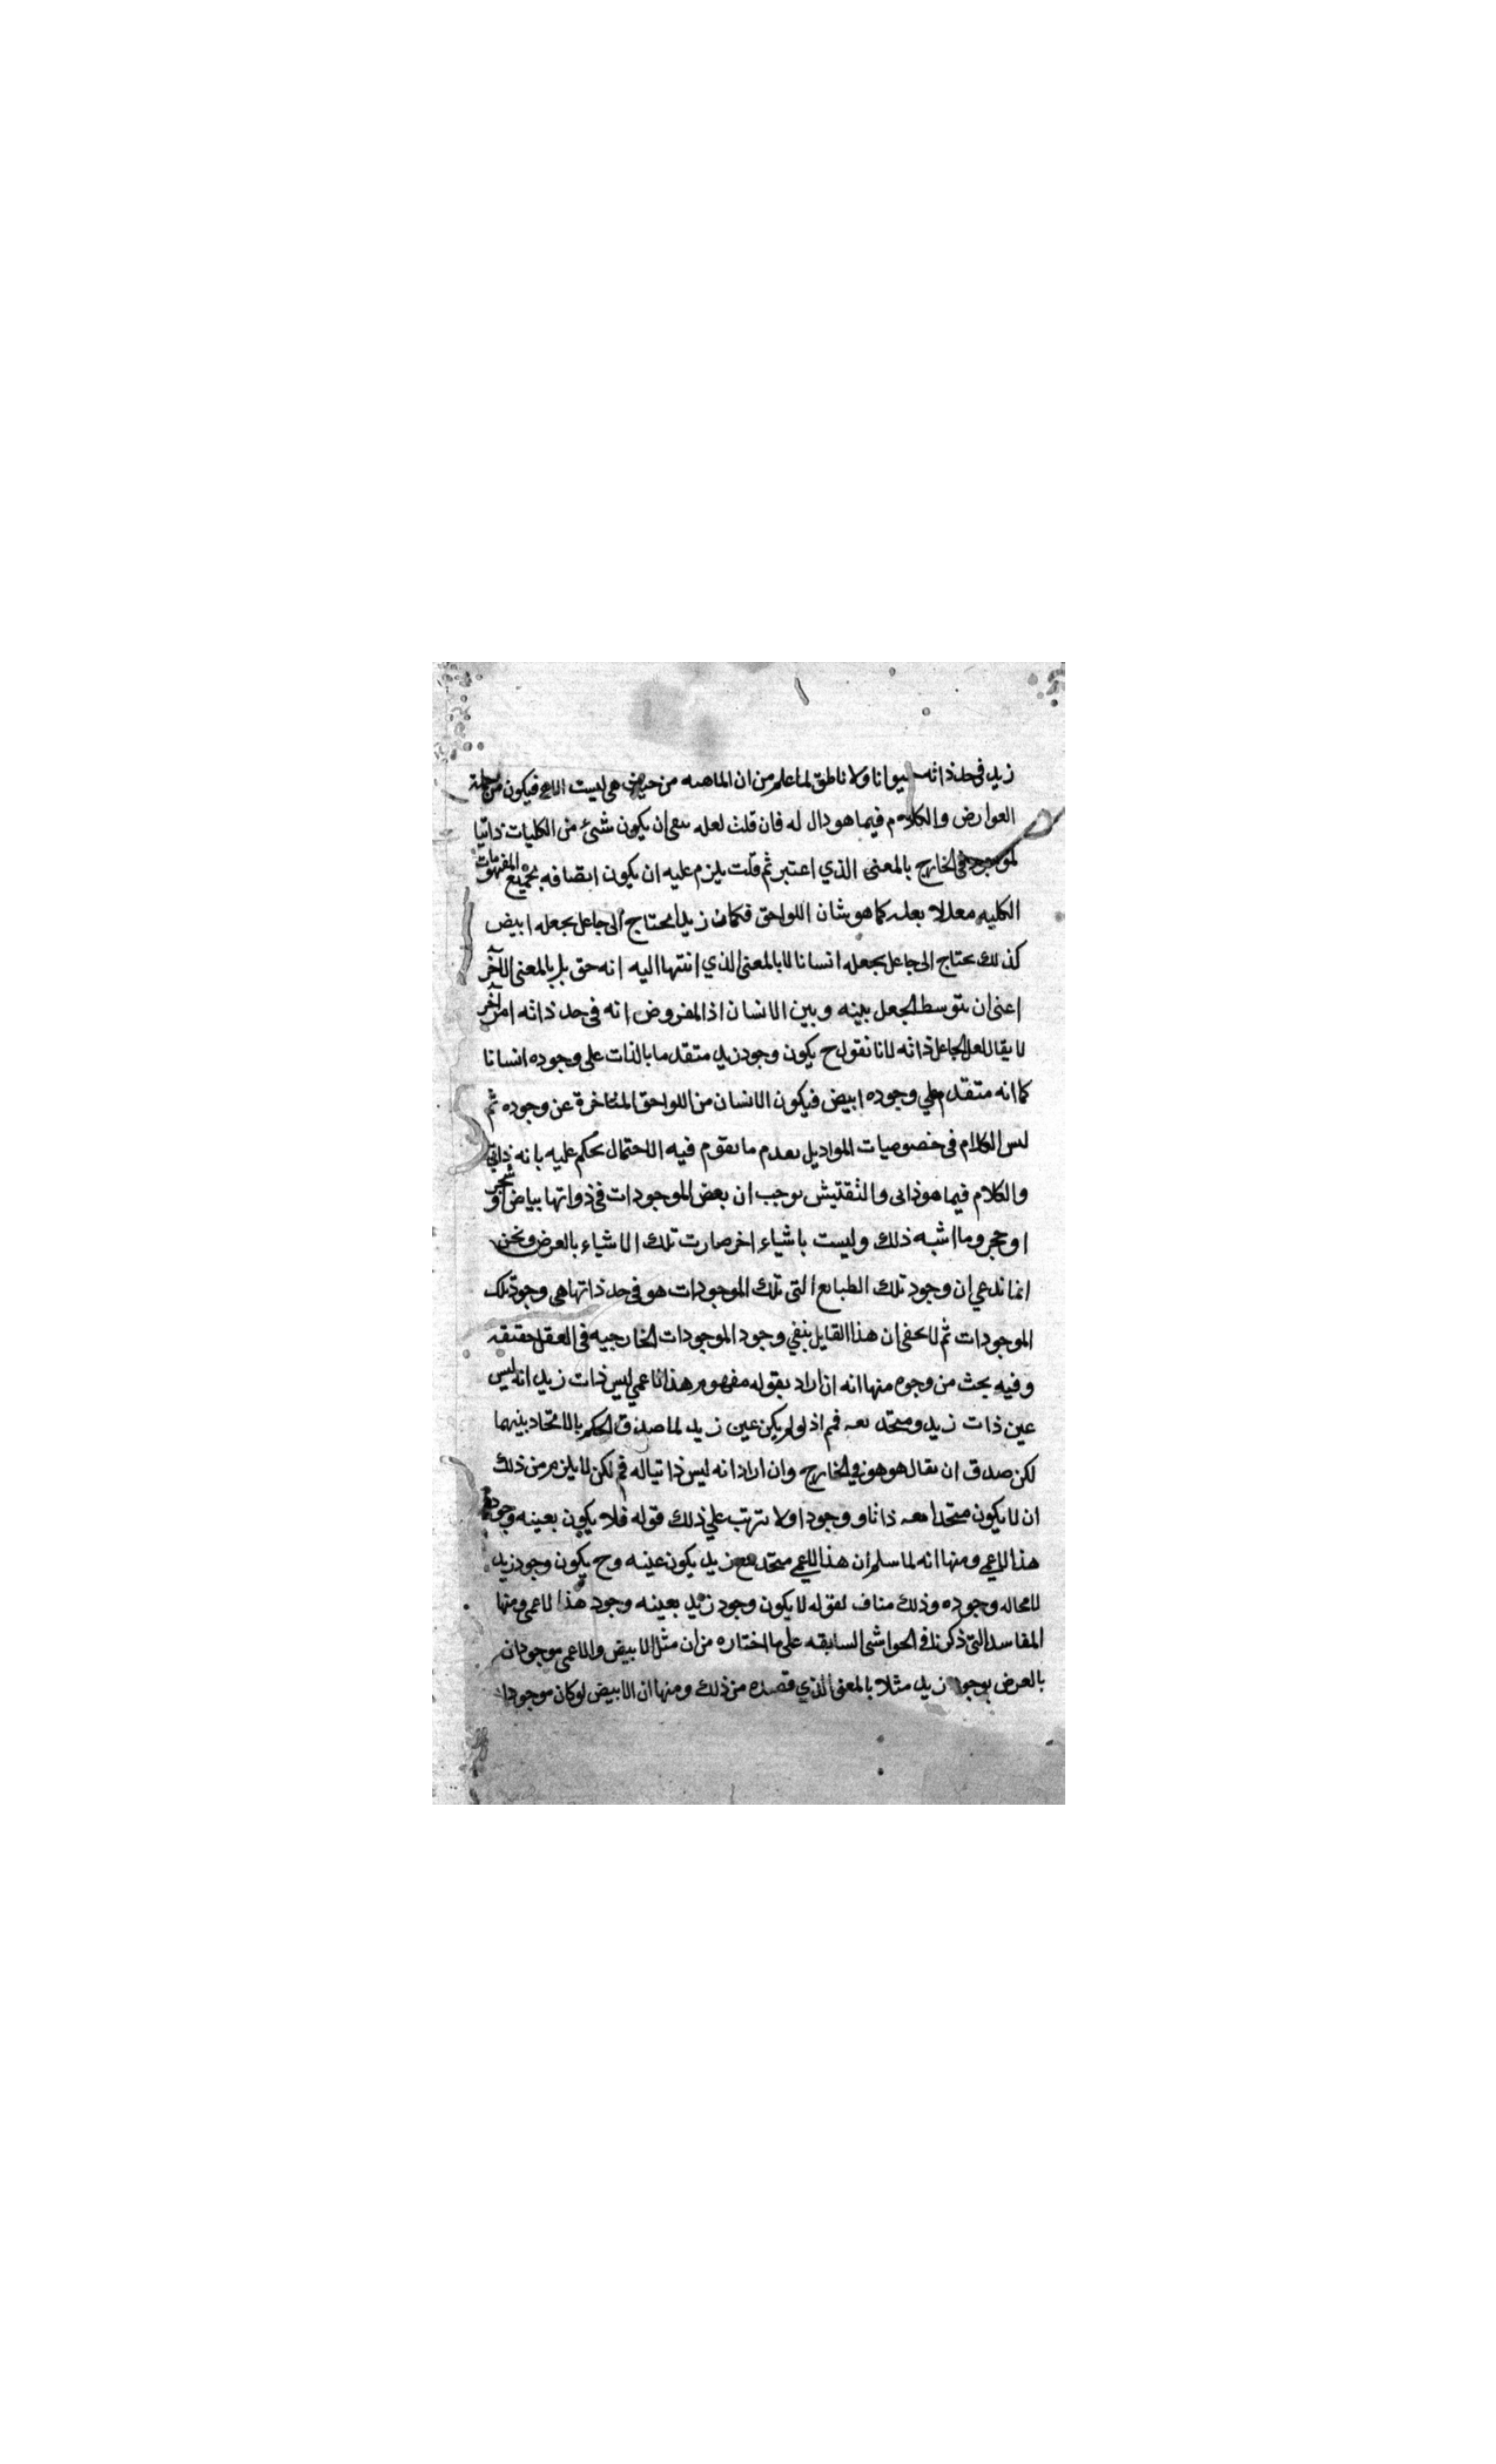 زيد فى حد ذاته حيوانا ولا ناطق لما علم من ان الماهيه من حيث هى ليست الا هى فيكون من جملة
العوارض والكلام فيما هو دال له فان قلت لعله ينفى ان يكون شئ من الكليات ذاتيا
لموجود فى الخارج بالمعنى الذي اعتبر ثم قلت يلزم عليه ان يكون اتصافه بجميع المفهومات
الكليه معللا بعله كما هو شان اللواحق فكما ان زيدا يحتاج الى جاعل يجعله ابيض
كذلك يحتاج الى جاعل يجعله انسانا لا بالمعنى الذي انتهينا اليه انه حق بل بالمعنى الآخر
اعنى ان يتوسط الجعل بينه وبين الانسان اذ المفروض انه فى حد ذاته امر آخر
لا يقال لعل الجاعل ذاته لانا نقول ح يكون وجود زيد متقدما بالذات على وجوده انسانا
كما انه متقدم على وجوده ابيض فيكون الانسان من اللواحق المتاخرة عن وجوده ثم
ليس الكلام فى خصوصيات المواد بل بعدم ما يقوم فيه الاحتمال يحكم عليه بانه ذاتى
والكلام فيما هو ذاتى والتفتيش يوجب ان بعض الموجودات فى ذواتها بياض او شجر
او حجر وما اشبه ذلك وليست باشياء اخر صارت تلك الاشياء بالعرض ونحن
انما ندعي ان وجود تلك الطبايع التى تلك الموجودات هو فى حد ذاتها هى وجود تلك
الموجودات ثم لا يخفى ان هذا القايل ينفي وجود الموجودات الخارجيه فى العقل حقيقه
وفيه بحث من وجوه منها انه ان اراد بقوله مفهوم هذا الاعمي ليس ذات زيد انه ليس
عين ذات زيد ومتحد معه فمم اذ لو لم يكن عين زيد لما صدق الحكم بالاتحاد بينهما
لكن صدق ان يقال هو هو فى الخارج وان اراد انه ليس ذاتيا له فم لكن لا يلزم من ذلك
ان لا يكون متحدا معه ذاتا ووجودا ولا يترتب علي ذلك قوله فلا يكون بعينه وجود
هذا الاعمي ومنها انه لما سلم ان هذا الاعمي متحد مع زيد يكون عينه وح يكون وجود زيد
لا محاله وجوده وذلك مناف لقوله لا يكون وجود زيد بعينه وجود هذا الاعمى ومنها
المفاسد التى ذكرنا فى الحواشى السابقه على ما اختاره من ان مثل الابيض والاعمى موجودان
بالعرض بوجود زيد مثلا بالمعنى الذي قصده من ذلك ومنها ان الابيض لو كان موجودا